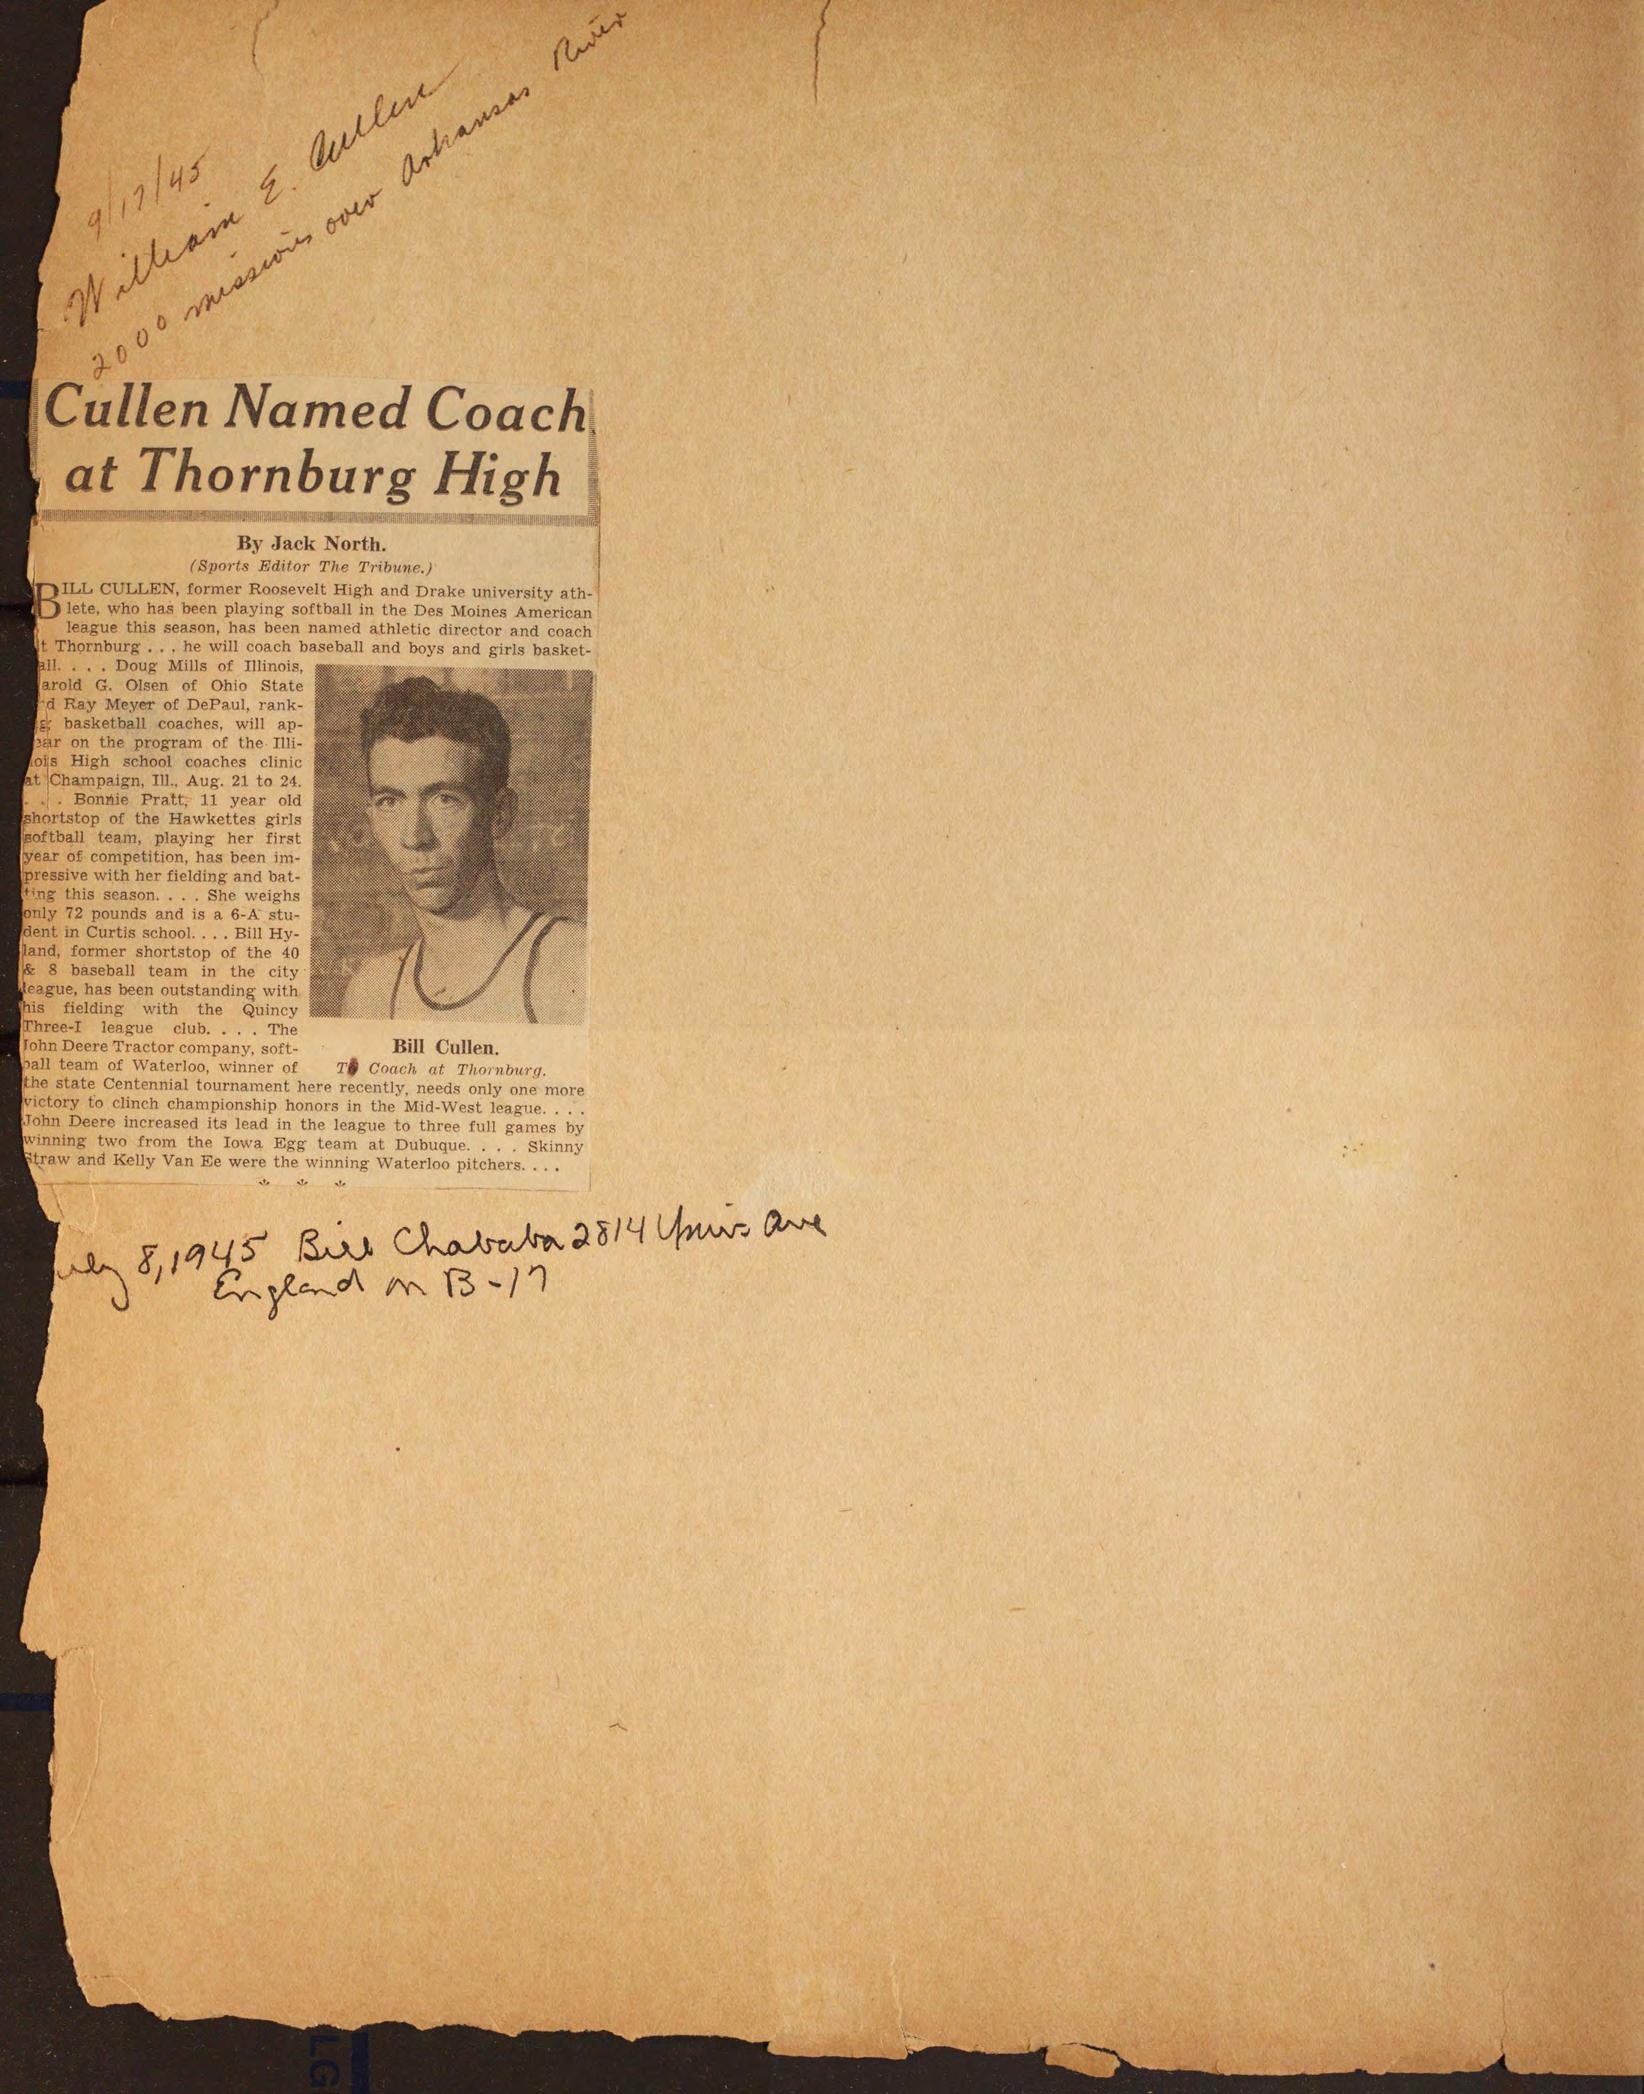 9/17/45
William E. Cullen
2000 missions over Arkansas River
Cullen Named Coach
at Thornburg High
By Jack North.
(Sports Editor The Tribune.)
BILL CULLEN, former Roosevelt High and Drake university ath-
lete, who has been playing softball in the Des Moines American
league this season, has been named athletic director and coach
t Thornburg . . . he will coach baseball and boys and girls basket-
all. . . . Doug Mills of Illinois,
arold G. Olsen of Ohio State
d Ray Meyer of DePaul, rank-
g basketball coaches, will ap-
ear on the program of the Illi-
ois High school coaches clinic
at Champaign, Ill., Aug. 21 to 24.
. . . Bonnie Pratt, 11 year old
shortstop of the Hawkettes girls
softball team, playing her first
year of competition, has been im-
pressive with her fielding and bat-
ting this season. . . . She weighs
only 72 pounds and is a 6-A stu-
dent in Curtis school. . . . Bill Hy-
land, former shortstop of the 40
& 8 baseball team in the city
league, has been outstanding with
his fielding with the Quincy
Three-I league club. . . . The
John Deere Tractor company, soft-
ball team of Waterloo, winner of
the state Centennial tournament here recently, needs only one more
victory to clinch championship honors in the Mid-West league. . . .
John Deere increased its lead in the league to three full games by
winning two from the Iowa Egg team at Dubuque. . . . Skinny
Straw and Kelly Van Ee were the winning Waterloo pitchers. . . .
Bill Cullen.
To Coach at Thornburg.
uly 8, 1945 Bill Chababa 2814 Ave
England on B-17
LG